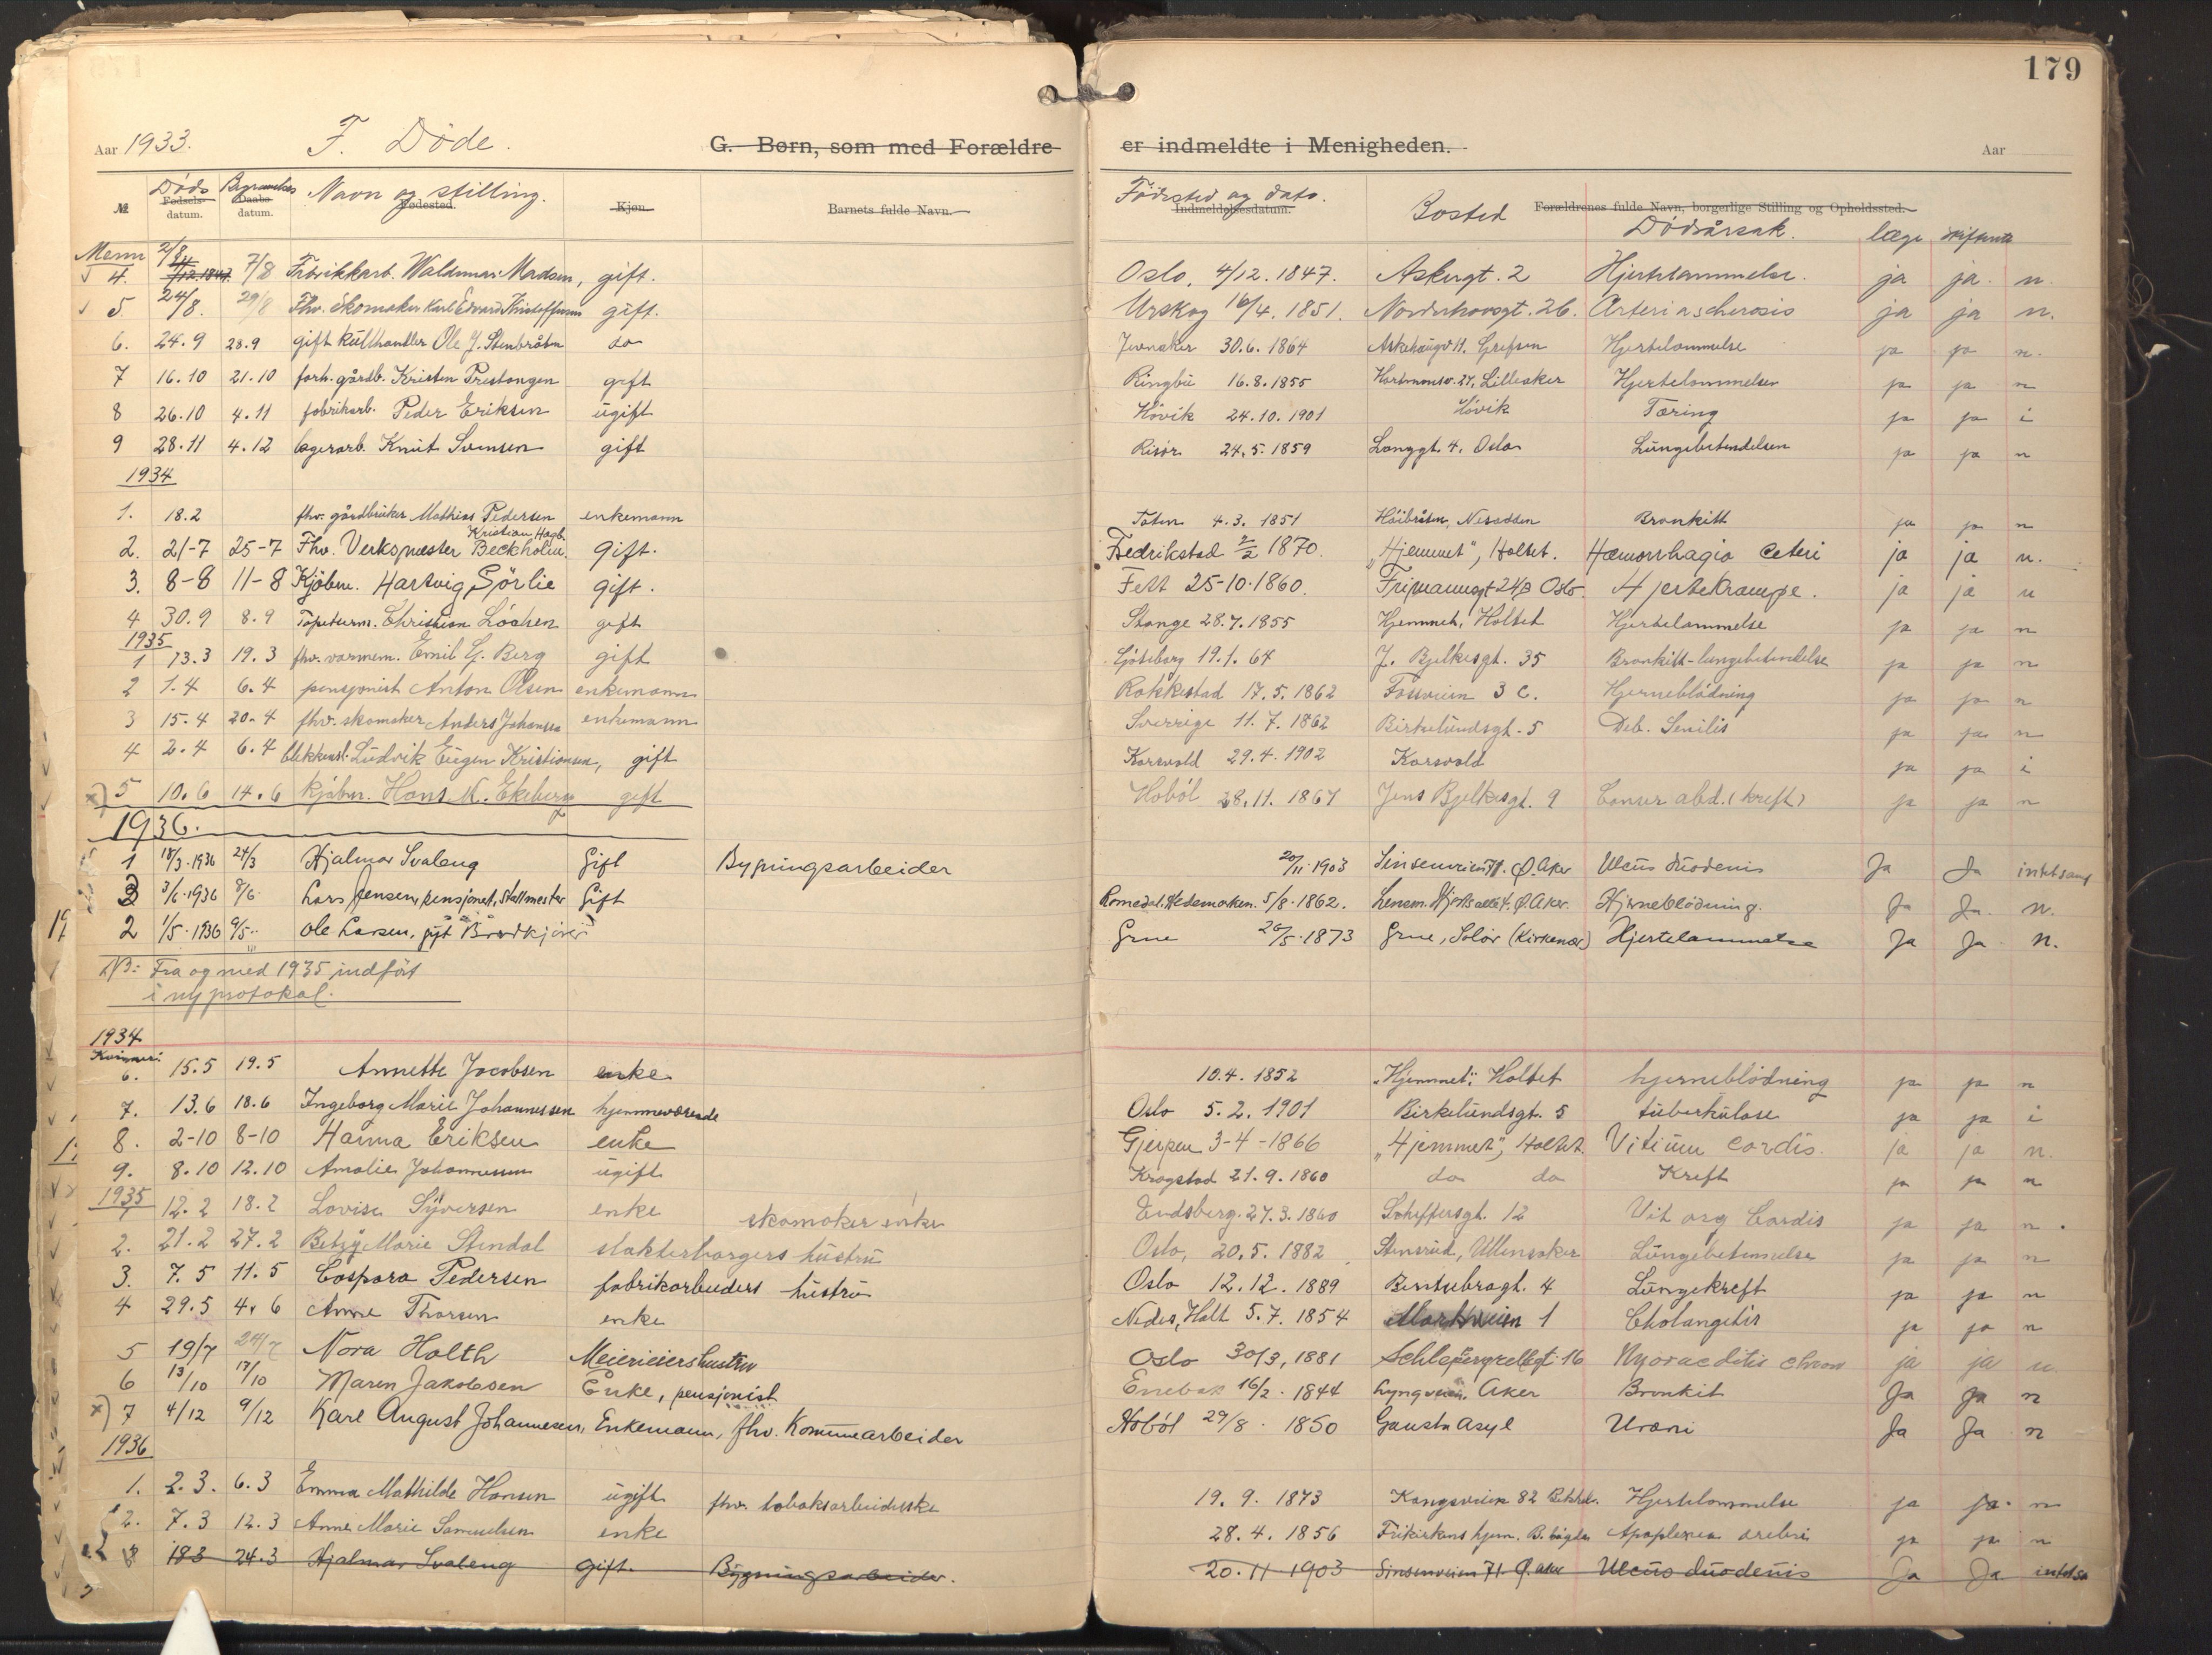 179
Aar 1933. F. Döde. G. Børn, som med Forældre er indmeldte i Menigheden. Aar
№ Döds Fødsels- datum. Begravelses Daabs datum. Navn og stilling. Fødested. Kjøn Barnets fulde Navn. Födested og dato. Indmeldelsesdatum. Bosted Forældrenes fulde Navn, borgerlige Stilling og Opholdssted. Dödsårsak. læge skifterett
Menn
4. 2/8 7/8 Fabrikkarb. Waldemar Madsen, gift. Oslo, 4/12. 1847. Askergt. 2 Hjertelammelse. ja ja. n.
5 24/8. 29/8 Fhv. skomaker Karl Edvard Kristoffersen gift. Urskog 16/4. 1851. Nordrehovsgt. 26. Arteriascherosis ja ja n.
6. 24.9 28.9 gift kulthandler Ole J. Stenbråten do Jevnaker 30.6. 1864 Askehaugv 11. Grefsen Hjertelammelse ja ja n.
7 16.10 21.10 forh. gårdb. Kristen Prestangen gift Ringbu 16.8.1855 Hartmannsv. 27, Lilleaker Hjertelammelsen ja ja n
8 26.10 4.11 fabrikarb. Peder Eriksen ugift Hövik 24.10.1901 Hövik Tæring ja ja i
9 28.11 4.12 lagerarb. Knut Svensen gift Risör 24.5.1859 Langgt. 4. Oslo Lungebetendelsen ja ja n
1934
1. 18.2 fhv. gårdbruker Mathias Pedersen enkemann Toten 4.3. 1851 Höibråten, Nesodden Bronkitt ja ja n
2. 21-7 25-7 Fhv. Verksmester Kristian Hagb. Beckholm. gift. Fredrikstad 2/2 1870. "Hjemmet", Holtet. Hæmorrhagia ceteri ja ja n.
3. 8-8 11-8 Kjöbm. Hartvig Sörlie gift. Fett 25-10-1860. Frimannsgt 24B Oslo. Hjertekrampe. ja ja n
4 30.9 8.9 Tapeterm. Christian Löchen gift Stange 28.7.1855 Hjemmet, Holtet Hjertelammelse ja ja n
1935
1 13.3 19.3 fhv. varmem. Emil G. Berg gift Göteborg 19.1.64 J. Bjelkesgt. 35 Bronkitt-lungebetendelse ja ja n
2 1.4 6.4 pensjonist Anton Olsen enkemann Rakkestad 17.5.1862 Fossveien 3 C. Hjerneblödning ja ja n
3 15.4 20.4 fhv. skomaker Anders Johansen enkemann Sverrige 11.7.1862 Birkelundsgt. 5 Deb. Senilis ja ja n
4 2.4 6.4 blekkensl. Ludvik Eugen Kristiansen, gift Korsvold 29.4.1902 Korsvold ja ja i
x) 5 10.6 14.6 kjöbm. Hans M. Ekeberg gift Hoböl 28.11.1867 Jens Bjelkesgt. 9 Canser abd. (kreft) ja ja n
1936.
1 18/3-1936 24/3 Hjalmar Svaleng Gift Bygningsarbeider 20/11-1903 Sinsenveien 71. Ø. Aker Ulcus duodenis Ja Ja intetsang
3 3/6-1936 8/6 Lars Jensen, pensjonet, Stallmester Gift Romedal. Hedemarken. 5/8-1862. Ø. Aker. Hjerneblödning. Ja Ja. n.
2 1/5-1936 9/5.. Ole Larsen, gift Brødkjører Grue 20/5-1873 Grue, Solör (Kirkenær) Hjertelammelse Ja Ja n.
NB: Fra og med 1935 indfört
i ny protokol.
1934
Kvinner:
6. 15.5 19.5 Annette Jacobsen enke 10.4. 1852 "Hjemmet", Holtet hjerneblödning ja ja n
7. 13.6 18.6 Ingeborg Marie Johannessen hjemmeværende Oslo 5.2.1901 Birkelundsgt. 5 tuberkulose ja ja i
8. 2-10 8-10 Hanna Eriksen enke Gjerpen 3-4-1866 "Hjemmet", Holtet. Vitium cordis. ja ja n.
9. 8.10 12.10 Amalie Johannessen ugift Krogstad 21.9.1860 do do Kreft ja ja n
1935
1 12.2 18.2 Lovise Syversen enke skomaker enke Eidsberg. 27.3.1860 Schiffersgt. 12 Vit org Cordis ja ja n.
2. 21.2 27.2 Betzy Marie Stendal slakterborgers hustru Oslo, 20.5.1882 Stensrud, Ullensaker Lungebetennelse ja ja n
3. 7.5 11.5 Caspara Pedersen fabrikarbeiders hustru Oslo 12.12.1889 Bentsebragt. 4 Lungekreft ja ja n
4 29.5 4.6 Anne Thorsen enke Nedes, Holt 5.7.1854 Markveien 1 Cholangitis ja ja n
5 19/7 24/7 Nora Holth Meierieiershustru Oslo 30/3, 1881 Schleppegrellsgt. 16 Myoracditis chron ja ja n.
6 13/10 17/10 Maren Jakobsen Enke, pensjonist Enebak 16/2. 1844 Lyngveien. Aker Bronkit Ja Ja n
x) 7 4/12 9/12 Karl August Johannesen, Enkemann, fhv. Kommearbeider Hoböl 29/8. 1850 Gausta Asyl Uræmi Ja Ja n
1936
1. 2.3. 6.3 Emma Mathilde Hansen ugift fhv. tobaksarbeiderske 19.9.1873 Kongsveien 82 Bekkel. Hjertelammelse ja ja. n
2. 7.3 12.3 Anne Marie Samuelsen enke 28.4.1856 Frikirkens hjem. Apoplexia ja ja n
18.3 24.3 Hjalmar Svaleng gift. Bygningsarbeider. 20.11 1903 Sinsenveien 71 Ø. aker Ulcus duodenis Ja Ja intetsa